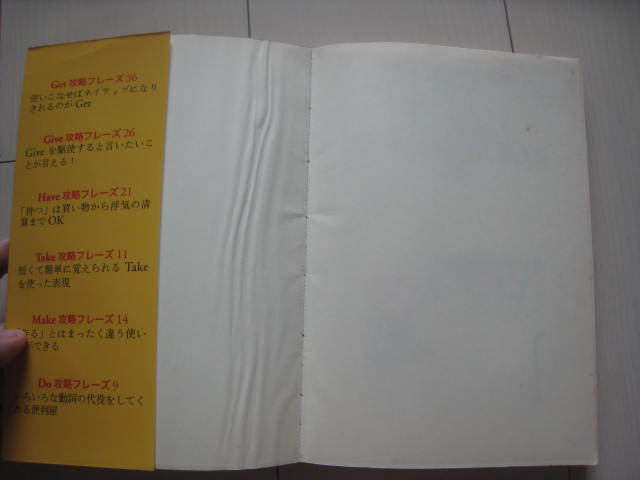 Get 攻略フレーズ 36
使いこなせばネイティブになり
きれるのが Get
Give 攻略フレーズ 26
Give を駆使すると言いたいこ
とが言える！
Have 攻略フレーズ 21
「持つ」は買い物から浮気の清
算まで OK
Take 攻略フレーズ 11
短くて簡単に覚えられる Take
を使った表現
Make 攻略フレーズ 14
る」とはまったく違う使い
ができる
Do 攻略フレーズ 9
いろいろな動詞の代役をしてく
れる便利屋